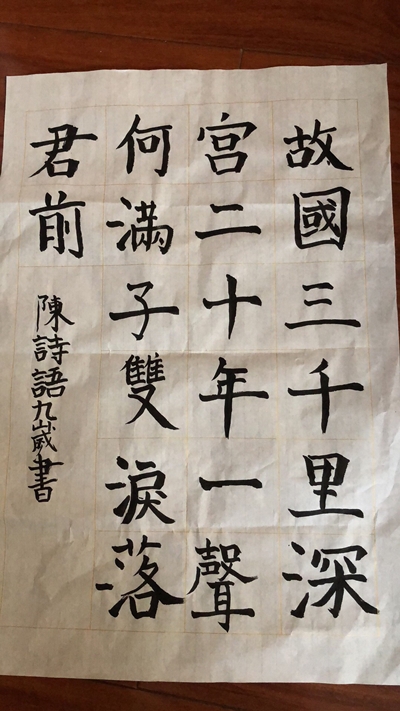 故國三千里深
宮二十年一聲
何滿子雙淚落
君前
陳詩語九歲書